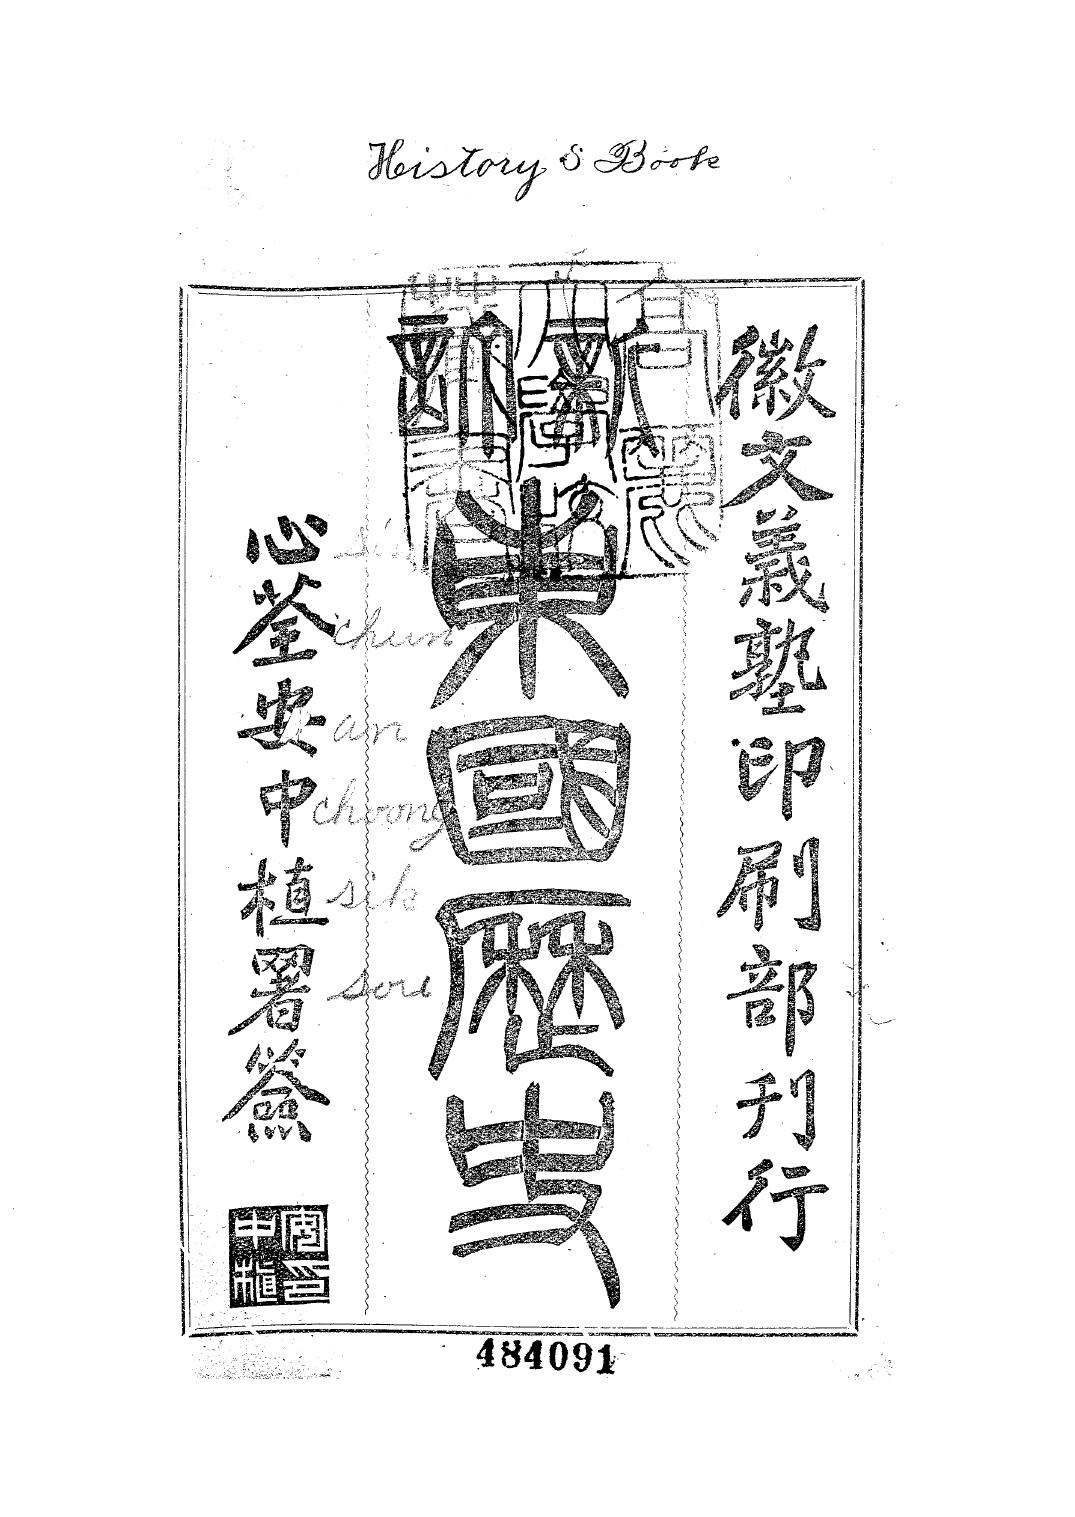 History S Book
徽文義塾印刷部刊行
東國歷史
心荃安中植署簽
chun
an
choong
sik
sou
安印
中植
484091